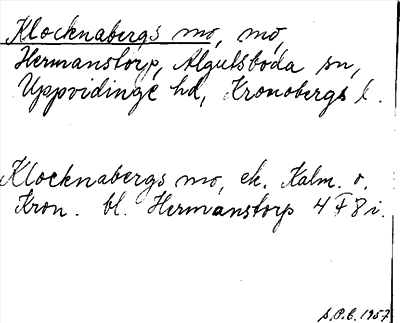 Klocknabergs mo, mo,
Hermanstorp, Algutsboda sn,
Uppvidinge hd, Kronobergs l.
Klocknabergs mo, ek. Kalm. o.
Kron. bl. Hermanstorp 4 F 8 i.
S.P.C. 1957